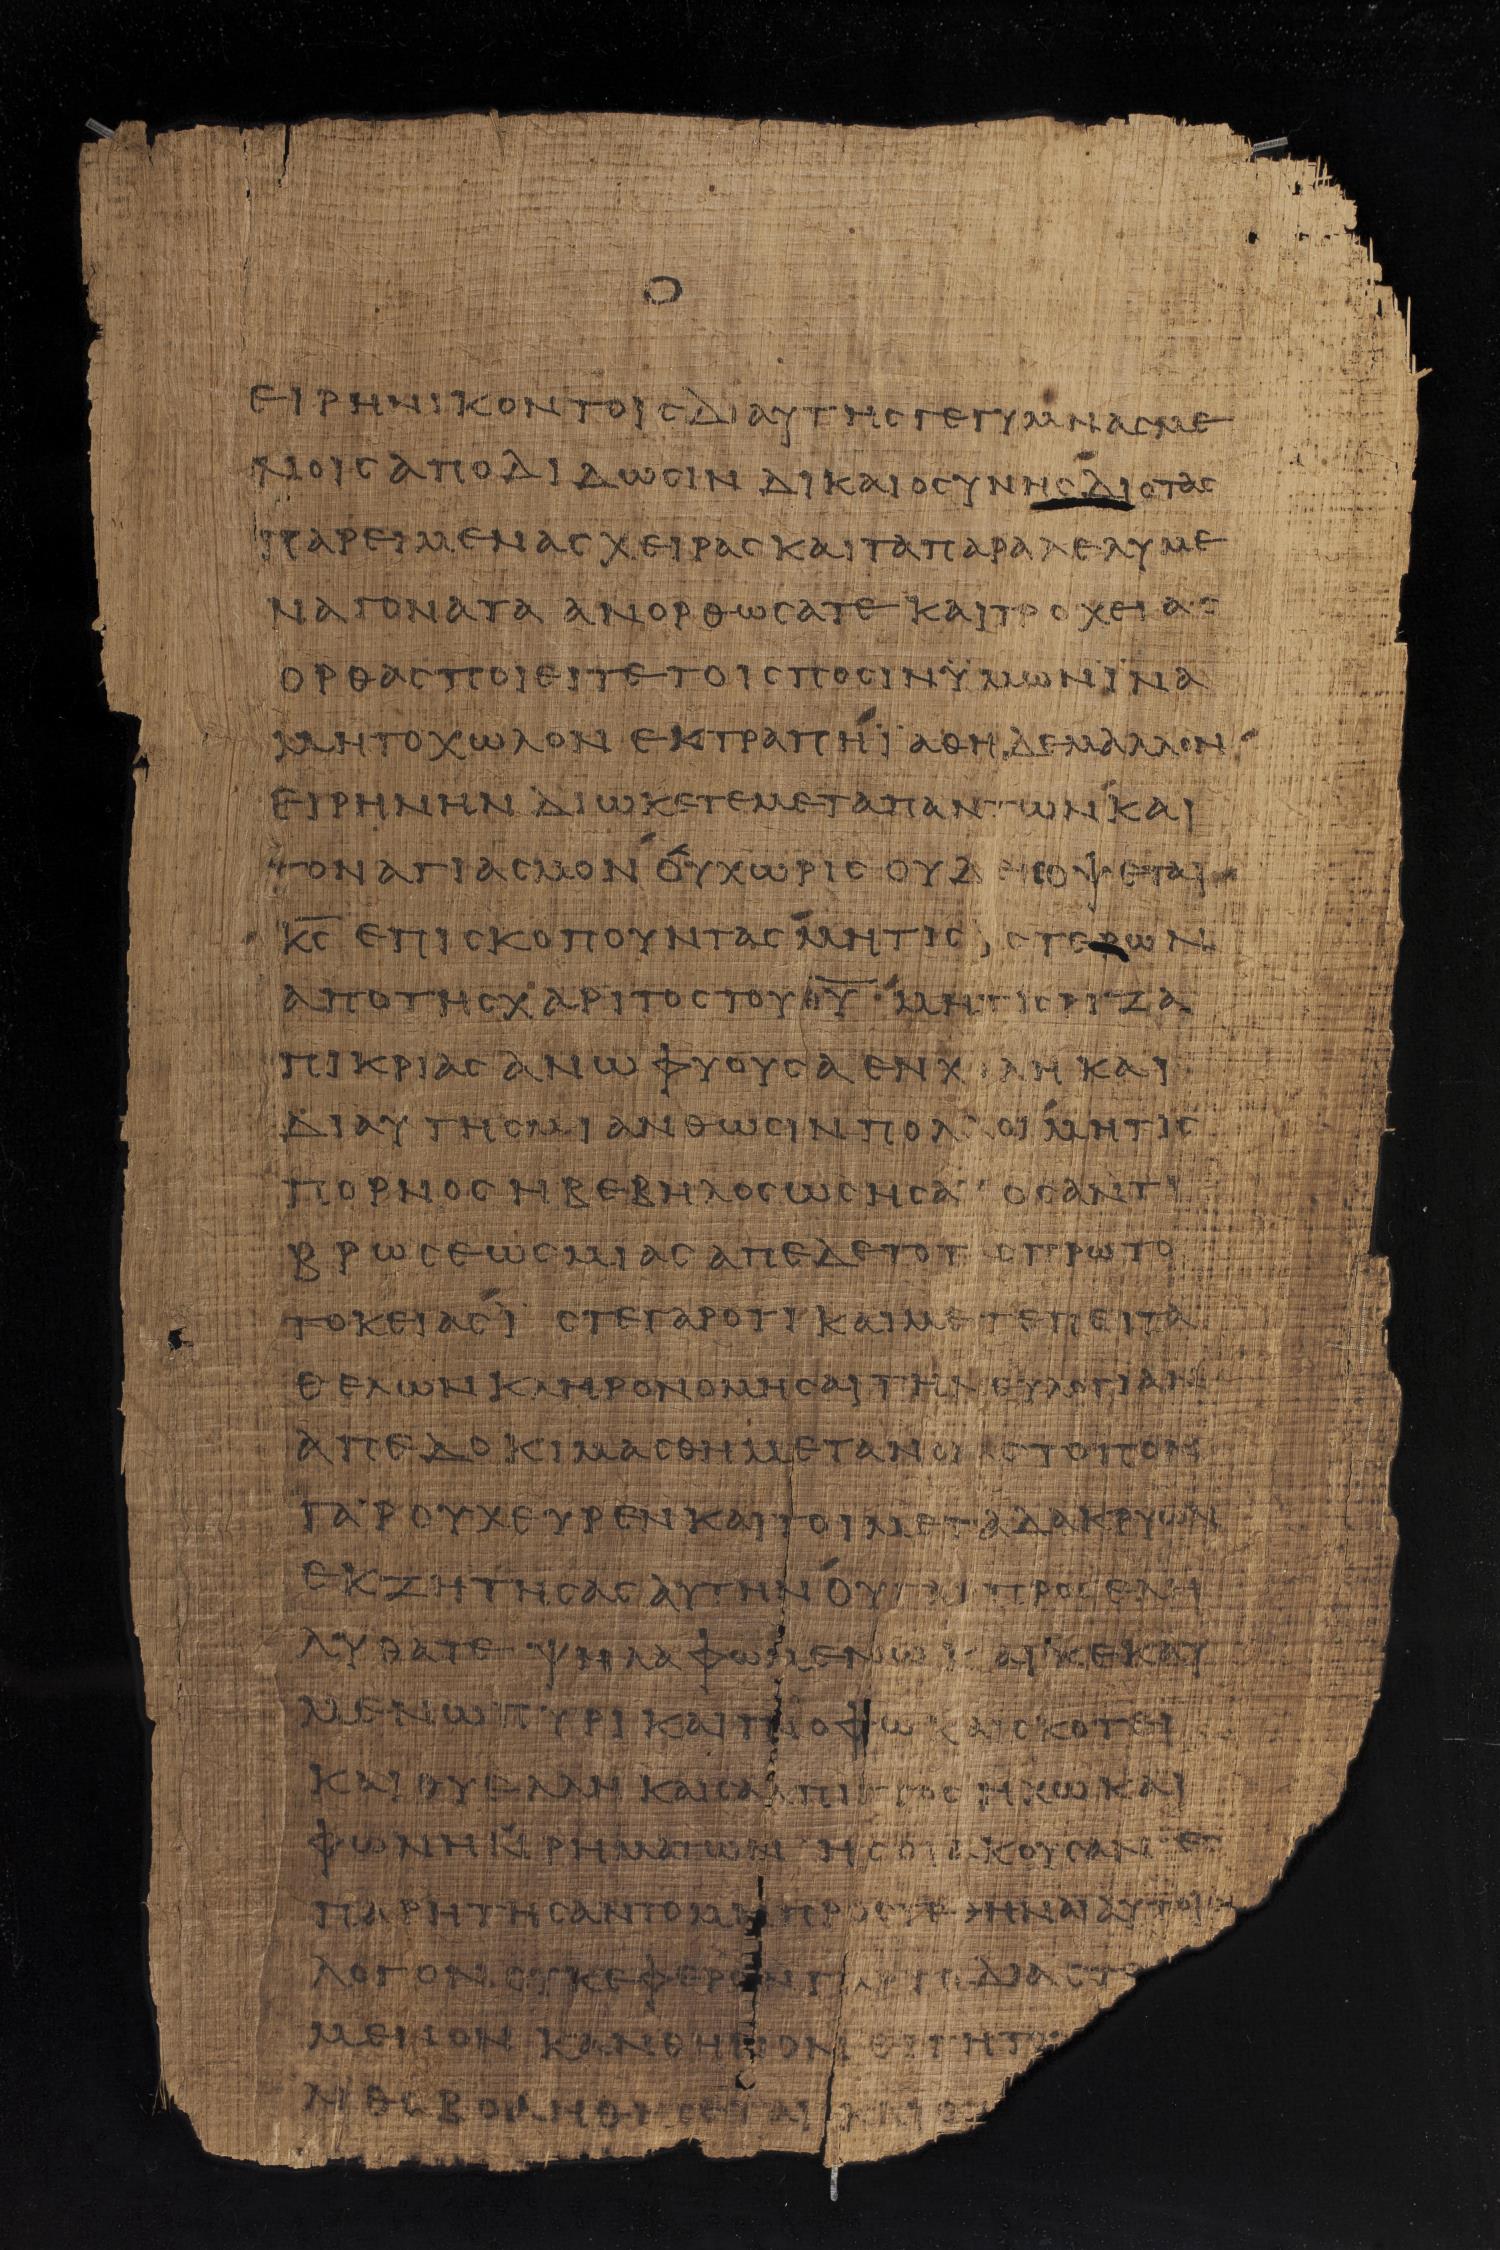 ο
ειρηνικοντοιςδιαυτηςγεγυμνασμε
νοιςαποδιδωσιν δικαιοσυνηςδιοτας
παρειμεναςχειραςκαιταπαραλελυμε
ναγονατα ανορθωσατε καιτροχειας
ορθαςποιειτετοιςποσινϋμωνϊνα
μητοχωλον εκτραπηϊαθηδεμαλλον
ειρηνην διωκετεμεταπαντωνκαι
τοναγιασμον ουχωρις ουδειςοψεται
κ̅ς̅ επισκοπουντας μητις υστερων
αποτηςχαριτοςτουθ̅υ̅ μητιςριζα
πικριας ανω φυουσα ενχολη και
διαυτηςμιανθωσινπολλοι μητις
πορνος η βεβηλοςωςησαυ οςαντι
βρωσεωςμιας απεδετοτ οπρωτο
τοκειαςϊστεγαροτικαιμετεπειτα
θελωνκληρονομησαιτηνευλογιαν
απεδοκιμασθημετανοιαςτοπον
γαρουχευρενκαιτοιμεταδακρυων
εκζητησαςαυτηνουγαρ προσελη
λυθατε ψηλαφωμενω και κεκαυ
μενω πυρι και γνοφω και σκοτει
και θυελλη και σαλπιγγος ηχω και
φωνηϊ ρηματων ηςοιακουσαντες
παρητησαντομη προστεθηναιαυτοις
λογον ουκεφερον γαρτο διαστελ
μενον κανθηριον θιγητου
λιθοβοληθησεται και ου